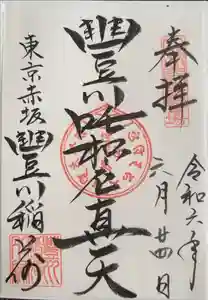 奉拝
令和六年
六月廿四日
豐川吒枳尼真天
東京赤坂
豐川稲荷